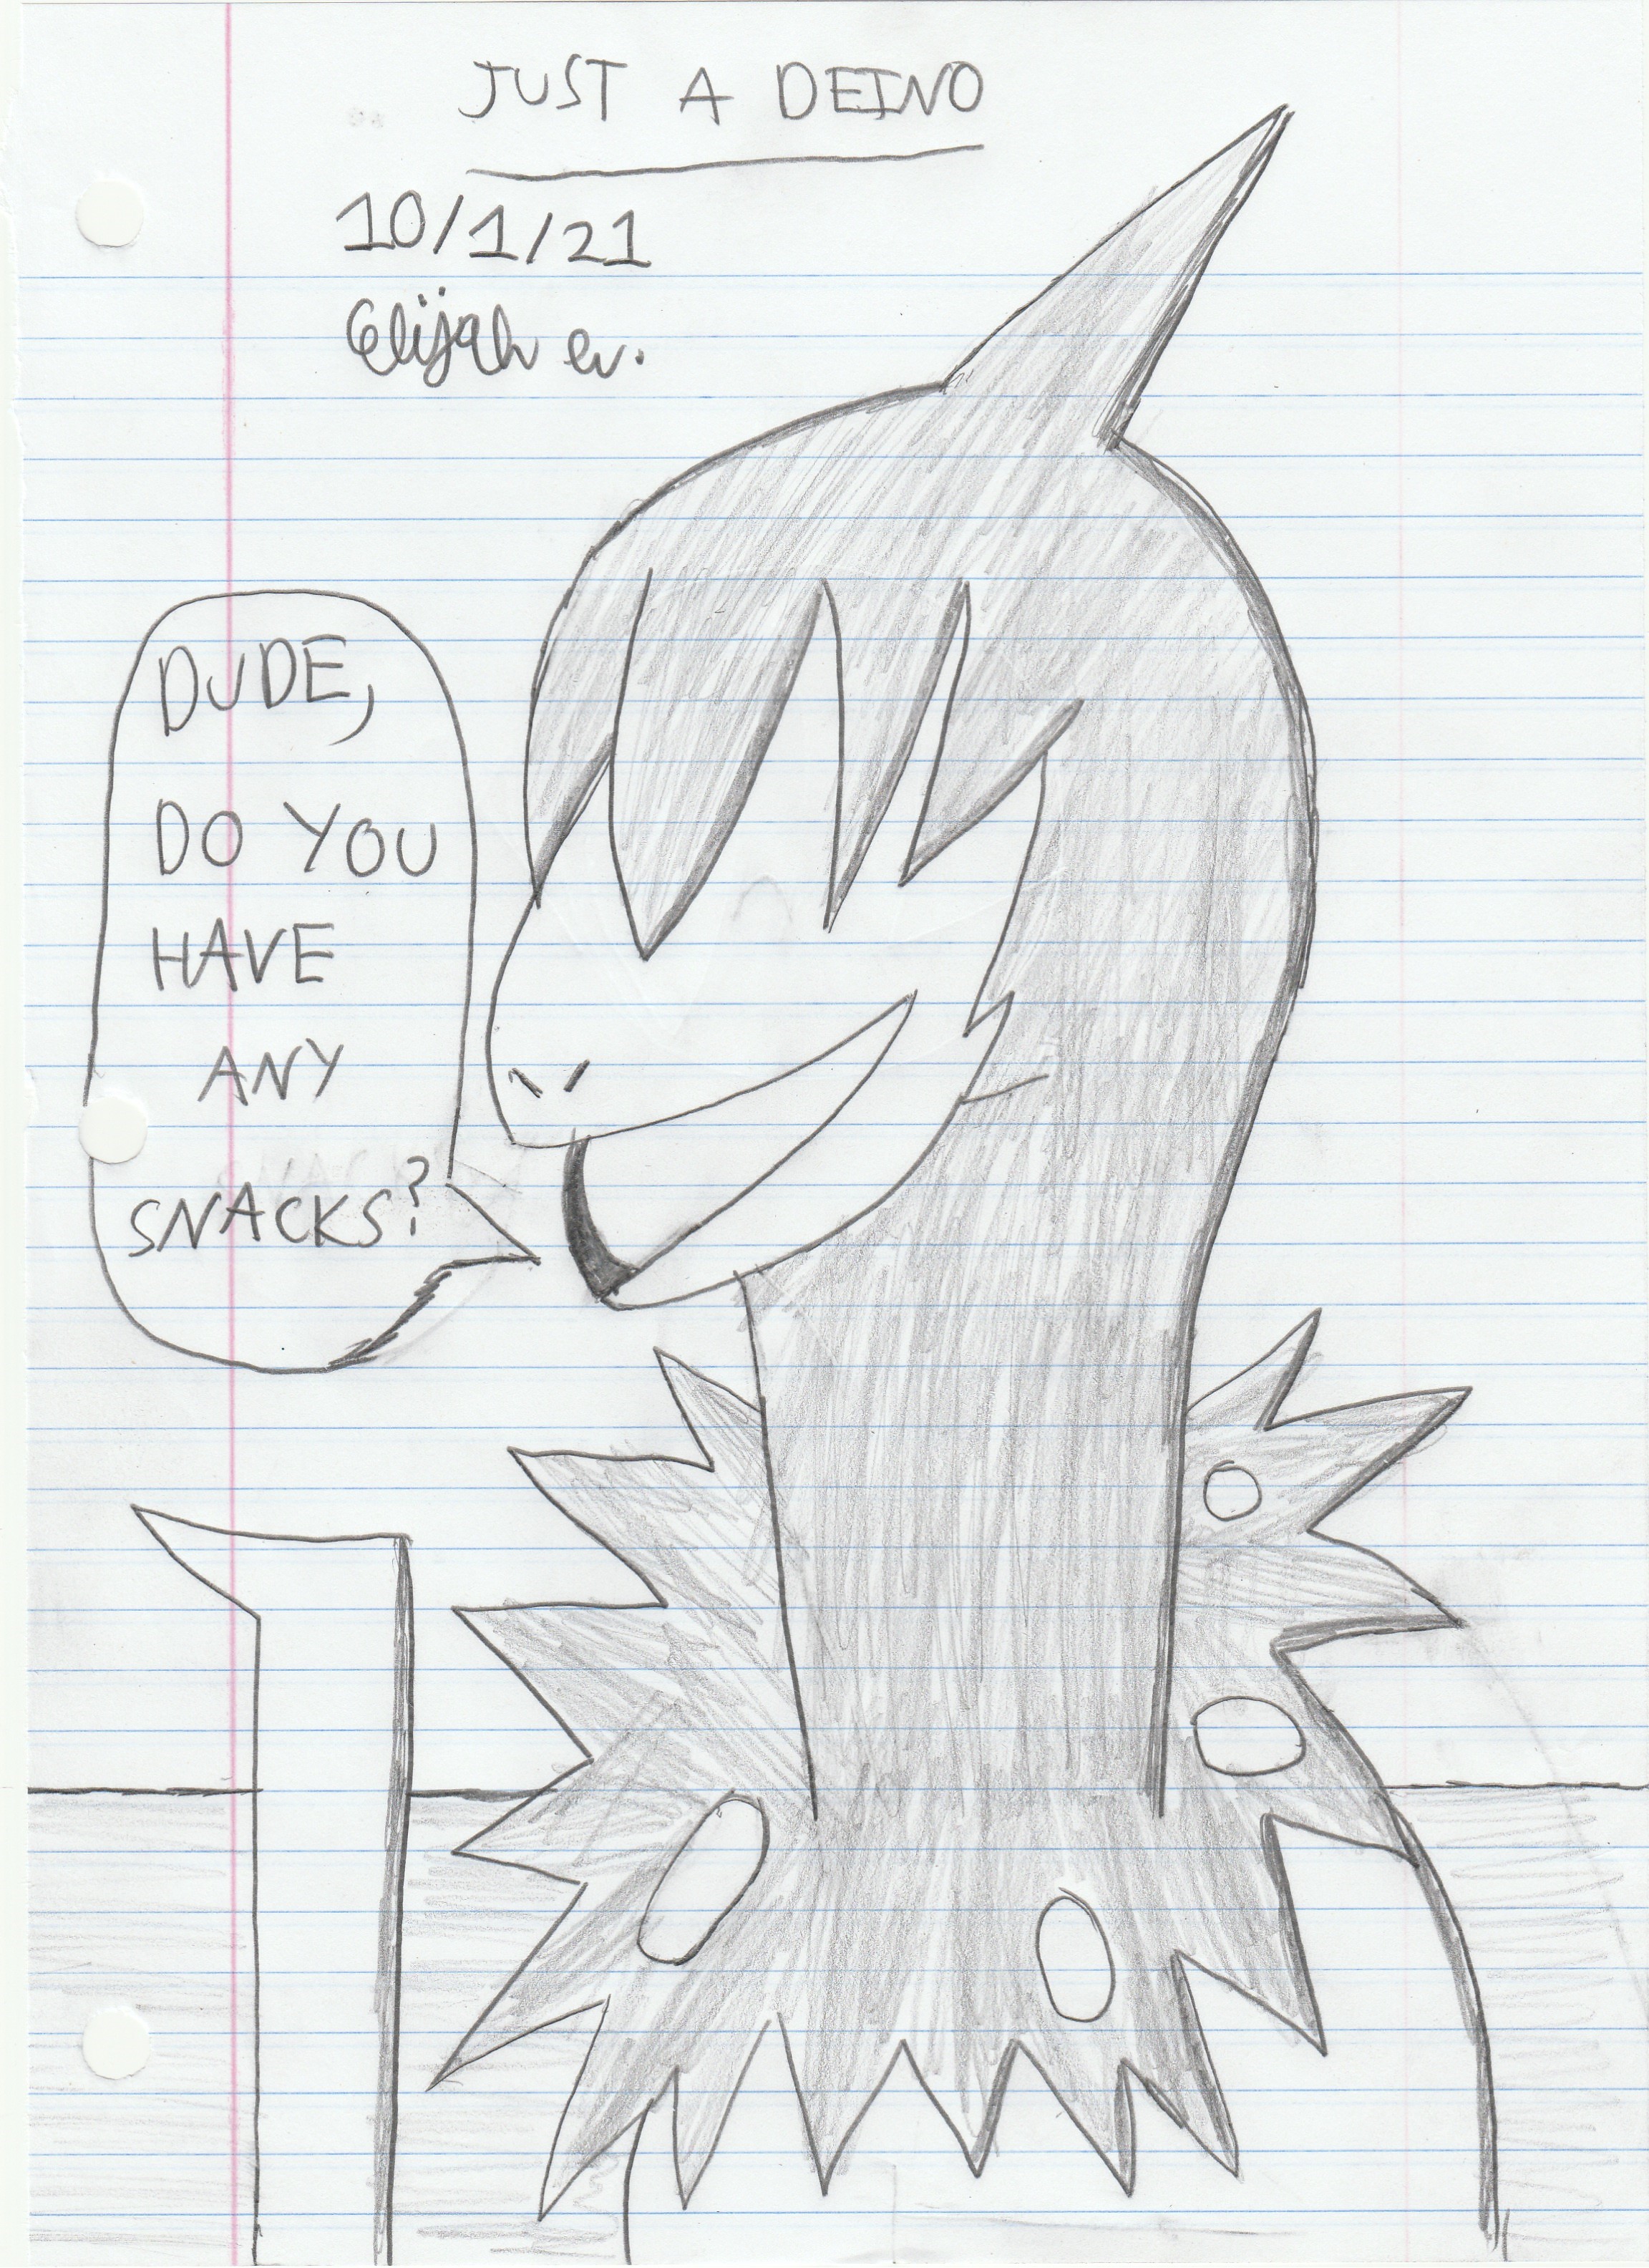 JUST A DEINO
10/1/21
Elijah w.
DUDE,
DO YOU
HAVE
ANY
SNACKS?